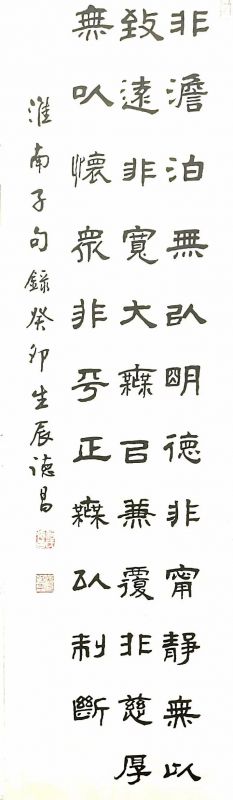 非澹泊無以明德非甯靜無以
致遠非寬大橆㠯兼覆非慈厚
無以懷眾非平正橆以制斷
淮南子句錄癸卯生辰德昌